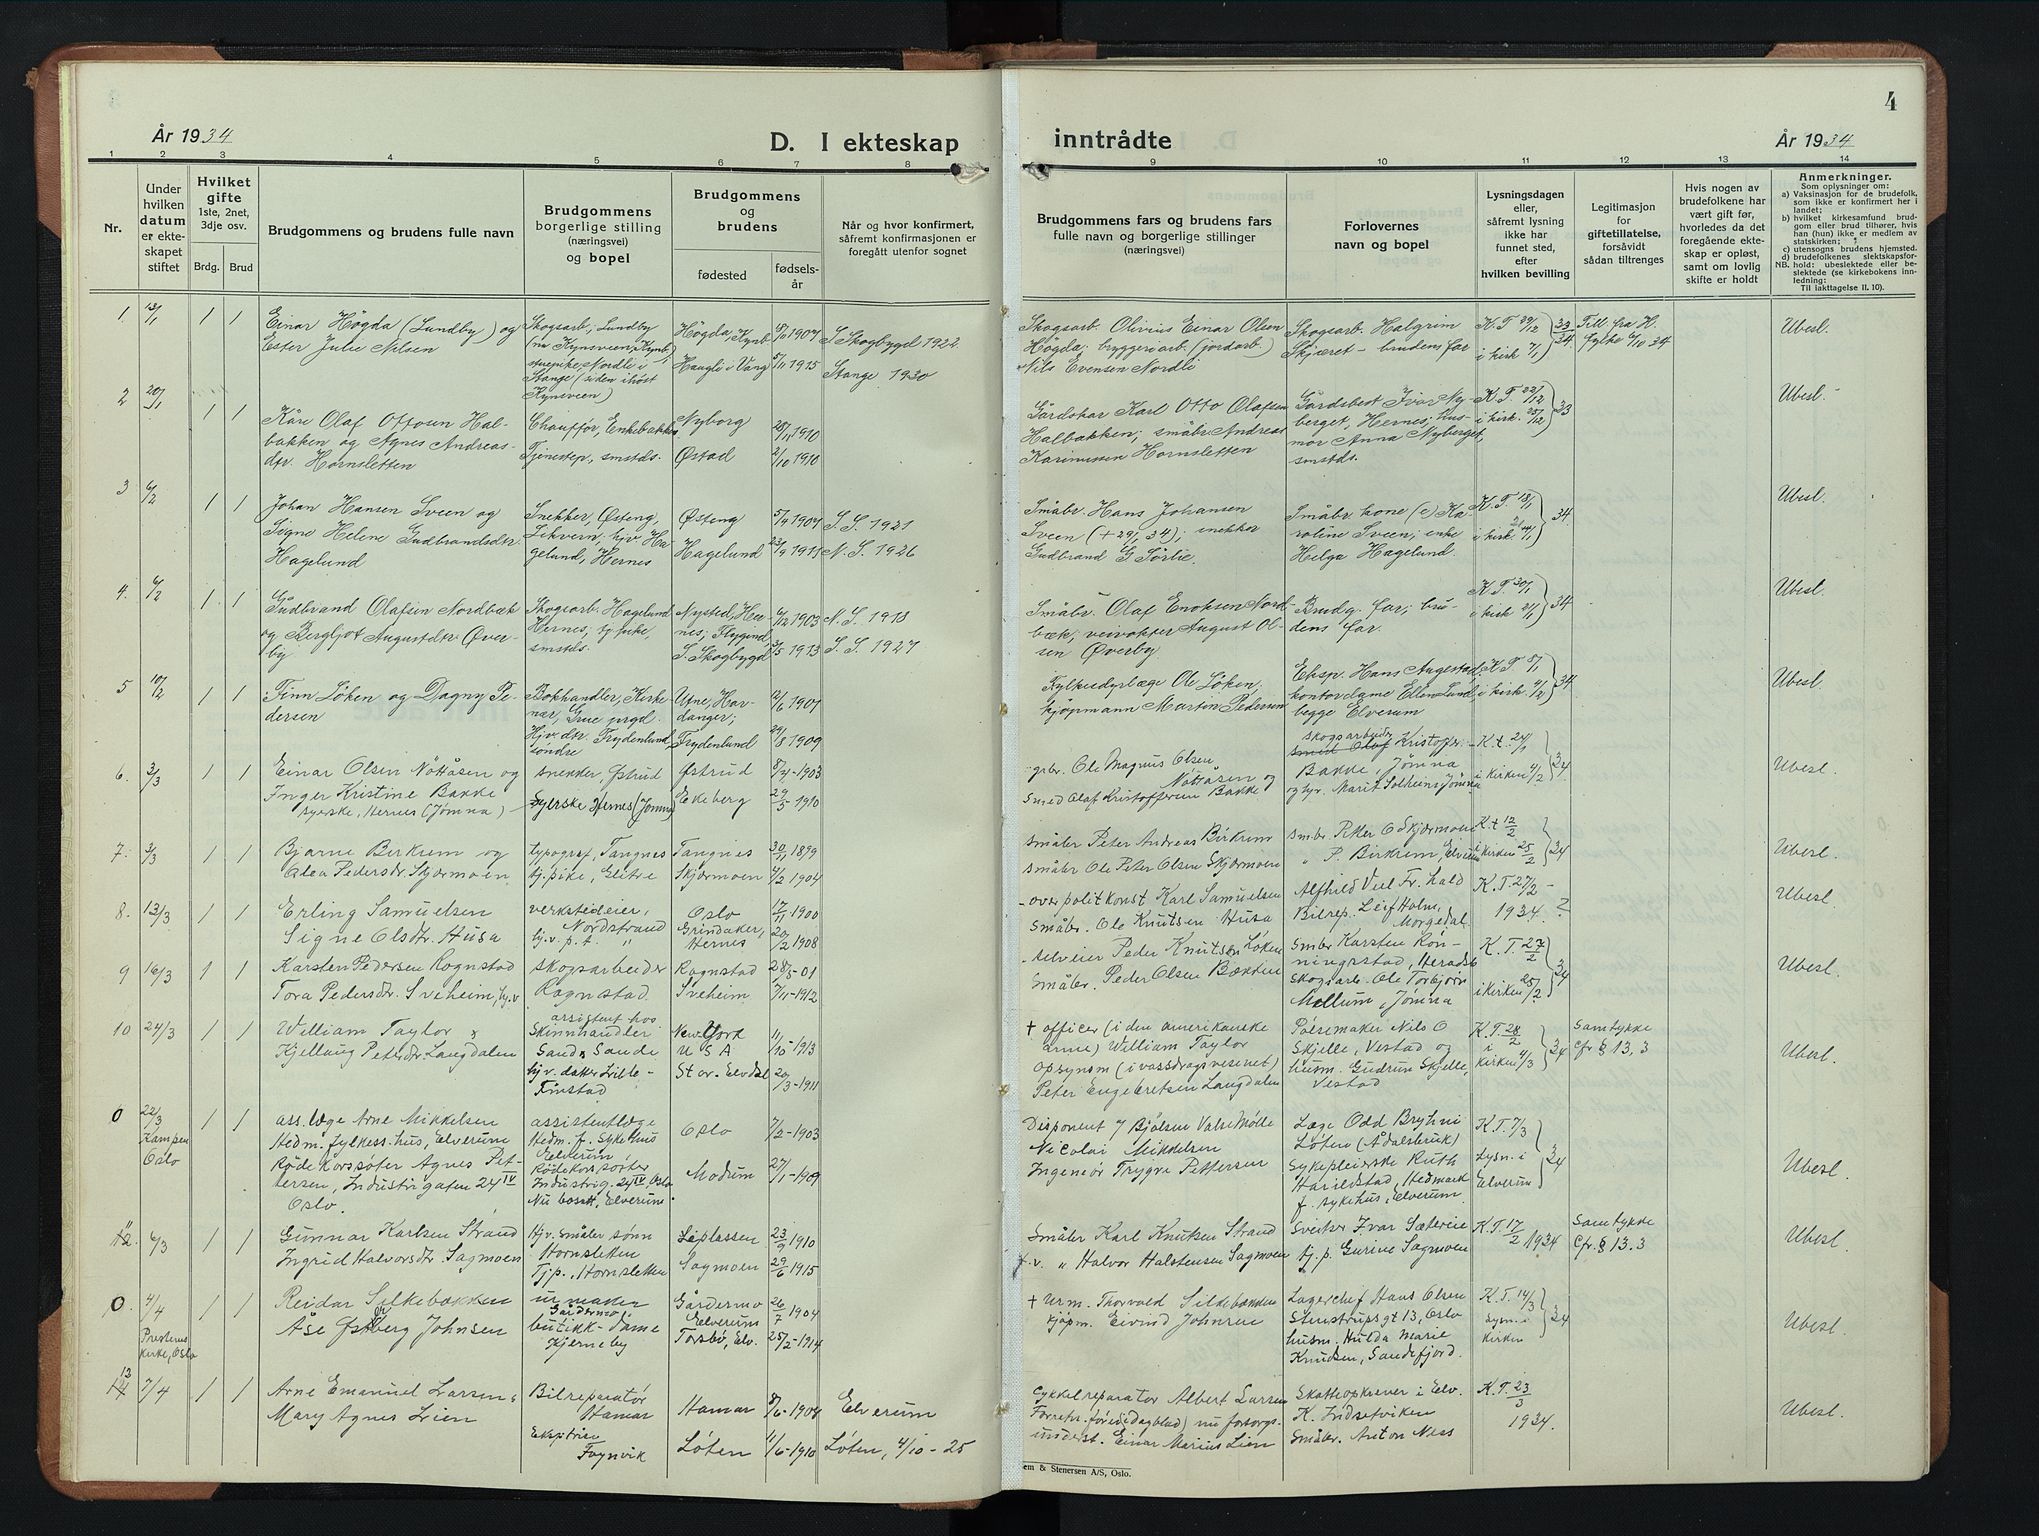 4
År 1934
D. I ekteskap
inntrådte
År 1934
1 2 3 4 5 6 7 8 9 10 11 12 13 14
Nr.
Under
hvilken
datum
er ekte-
skapet
stiftet
Hvilket
gifte
1ste, 2net,
3dje osv.
Brdg. Brud
Brudgommens og brudens fulle navn
Brudgommens
borgerlige stilling
(næringsvei)
og bopel
Brudgommens
og
brudens
fødested
fødsels-
år
Når og hvor konfirmert,
såfremt konfirmasjonen er
foregått utenfor sognet
Brudgommens fars og brudens fars
fulle navn og borgerlige stillinger
(næringsvei)
Forlovernes
navn og bopel
Lysningsdagen
eller,
såfremt lysning
ikke har
funnet sted,
efter
hvilken bevilling
Legitimasjon
for
giftetillatelse,
forsåvidt
sådan tiltrenges
Hvis nogen av
brudefolkene har
vært gift før,
hvorledes da det
foregående ekte-
skap er opløst,
samt om lovlig
skifte er holdt
Anmerkninger.
Som oplysninger om:
a) Vaksinasjon for de brudefolk,
som ikke er konfirmert her i
landet;
b) hvilket kirkesamfund brud-
gom eller brud tilhører, hvis
han (hun) ikke er medlem av
statskirken;
c) utensogns brudens hjemsted.
d) brudefolkenes slektskapsfor-
NB. hold: ubeslektede eller be-
slektede (se kirkebokens inn-
ledning:
Til iakttagelse II. 10).
1. 13/1 1 1
Einar Høgda (Lundby) og
Ester Julie Nilsen
Skogsarb., Lundby
Stange (siden ihøst
Kynsveen)
Høgda, Kynb. 18/10 1907 S. Skogbygd 1922
Haugli i Vang 5/11 1915 Stange 1930
Skogsarb. Olivius Einar Olsen
Høgda; bryggeriarb. (jordarb.)
Nils Evensen Nordli
Skogsarb. Halgrim
Skjæret - brudens far
K. T. 29/12
i kirk. 7/1
33/34
Till. fra H.
fylke 6/10 34
Ubesl.
2 20/1 1 1
Kåre Olaf Ottosen Hal-
bakken og Agnes Andreas-
dtr. Hornsletten
Chauffør, Enkebakken
Tjenestep., smstds.
Nyborg 28/11 1910
Østad 2/10 1910
Gårdbkar Karl Otto Olafsen
Halbakken; småbr. Andreas
Karinussen Hornsletten
Gårdsbest Ivar Ny-
berget, Hernes; hus-
mor Anna Nyberget,
smstds.
K. T. 22/12
i kirk. 25/12
33
Ubesl.
3 6/2 1 1
Johan Hansen Sveen og
Signe Helene Gudbrandsdtr.
Hagelund
Snekker, Østeng,
Lekvern; hjv. Ha-
gelund, Hernes
Østeng 5/9 1907 S. S. 1921
Hagelund 23/9 1911 N. S. 1926
Småbr. Hans Johansen
Sveen (+ 29/1 34); snekker
Gudbrand G. Sørlie.
Småbr. kone (e) Ka-
roline Sveen; enke
Helga Hagelund.
K. T. 18/1
i kirk. 21/1
34
Ubesl.
4. 6/2 1 1
Gudbrand Olafsen Nordbæk
og Bergljot Augustdtr. Øver-
by
Skogsarb. Hagelund
Hernes; tj. pike,
smstds.
Nysted, Her-
nes; Flygind,
S. Skogbygd
6/12 1903 N. S. 1918
3/5 1913 S. S. 1927
Småbr. Olaf Enoksen Nord-
bæk; veivokter August Ol-
sen Øverby
Brudg. far; bru-
dens far.
K. T. 30/1
i kirk. 21/1
34
Ubesl.
5 10/2 1 1
Finn Løken og Dagny Pe-
dersen
Bokhandler, Kirke-
nær, Grue prgd.
Hjv. dtr. Frydenlund
søndre
Utne, Har-
danger;
Frydenlund
12/6 1907
29/8 1909
Fylkesdyrlæge Ole Løken,
kjøpmann Marten Pedersen
Eksp. Hans Augestad,
kontordame Ellen Lund,
begge Elverum
K. T. 8/1
i kirk. 4/2
34
Ubesl.
6. 3/3 1 1
Einar Olsen Nøttåsen og
Inger Kristine Bakke
syerske, Hernes (Jømna)
snekker, Østrud
Syerske Hernes (Jømna)
Østrud 8/4-1903
Ekeberg 29/5 1910
grbr. Ole Magnus Olsen
Nøttåsen og
Smed Olaf Kristoffersen Bakke
skogsarbeider
smed Olaf Kristoffer
Bakke, Jømna
og hjv. Marit Solheim, Jømna
K. t. 24/1
i kirken 4/2
34
Ubesl.
7. 3/3 1 1
Bjarne Birkrem og
Olea Pedersdtr. Skjærmoen
typograf, Tangnes
tj. pike, Glitre
Tangnes 30/11 1899
Skjærmoen 4/2 1904
småbr Peter Andreas Birkrem
småbr Ole Peter Olsen Skjærmoen
smbr Petter O Skjærmoen
" P. Birkrem, Elverum
K. t 12/2
kirken 25/2
34
Ubesl.
8. 13/3 1 1
Erling Samuelsen
Signe Olsdtr. Husa
verkstedeier,
Nordstrand
hj.v. p.t. "
Oslo 17/11 1900
Grindaker,
Hernes
20/2 1908
overpolitikonst Karl Samuelsen
Småbr. Ole Knutsen Husa
Alfhild Veel Fr. Lald
Bilrep. Leif Holm,
Morgedal
K. T. 27/2 -
1934. ?
Ubesl.
9 16/3 1 1
Karsten Pedersen Rognstad
Tora Pedersdtr. Sveheim, hj.v
skogsarbeider
Rognstad.
Rognstad 28/5-01
Sveheim 7/11-1912
selveier Peder Knutsen Løken
Småbr. Peder Olsen Bækken
Smbr Karsten Røn-
ningstad, Heradsb
Skogsarb. Ole Torbjørn
Mellum, Jømna
K. T. 27/2
i kirken 25/2
34
Ubesl.
10 24/3 1 1
William Taylor &
Kjellaug Petersdtr Langdalen
assistent hos
Skinnhandler
Sand & Sande
hj.v. datter Lille-
Finstad
New York
U S A
11/10-1913
Stor-Elvdal 20/3-1911
+ officer (i den amerikanske
arme) William Taylor
opsynsm (i vassdragsvesenet)
Peter Engebretsen Langdalen
Pølsemaker Nils O
Skjelle, Vestad og
husm. Gudrun Skjelle,
Vestad
K. T. 28/2
i
kirken 4/3
34
Samtykke
cfr § 13, 3
Ubesl.
0 22/3 1 1
Kampen
Oslo
ass. læge Arne Mikkelsen
Hedm. fylkess. hus, Elverum
Røde Korssøster Agnes Pet-
tersen, Industrigaten 24 IV
Oslo.
assistentlæge
Hedm. f. Sykehus
Elverum
Rødekorssøster
Industrig. 24 IV, Oslo
Nu bosatt, Elverum.
Oslo 7/2-1903
Modum 27/1-1909
Disponent v/ Bjølsen Valsemølle
Nicolai Mikkelsen
Ingeniør Trygve Pettersen
Læge Odd Bryhni
Løten (Ådalsbruk)
Sykepleierske Ruth
Harildstad, Hedmark
f. sykehus, Elverum.
K. T. 7/3
Lysn. i
Elverum
34
Ubesl.
12. 6/3 1 1
Gunnar Karlsen Strand
Ingrid Halvorsdtr. Sagmoen
Hjv. Småbr sønn
Hornsletten
Tj.p., Hornsletten
Leplassen 23/9 1910
Sagmoen 29/6 1915
Småbr Karl Knutsen Strand
f.v. " Halvor Halstensen Sagmoen
Sveiser Ivar Sæterlie
tj. p. Gurine Sagmoen
K. T. 17/2 1934
Samtykke
Cfr. § 13.3
Ubesl.
0. 4/4 1 1
Prestenes
kirke, Oslo
Reidar Silkebækken
Åse Østberg Johnsen
urmaker
Gårdermo,
butikk-dame
Kjerneby
Gårdermo
Elverum
26/7 1904
Torsbø, Elv. 25/2-1914
+ Urm. Thorvald Sildebækken
kjøpm. Eivind Johnsen
Lagerchef Hans Olsen
Stenstrupsgt 13, Oslo
husm. Hulda Marie
Knudsen, Sandefjord.
K. T. 14/3
Lysn. i
kirken
34
Ubesl.
13
7/4 1 1
Arne Emanuel Larsen
Mary Agnes Lien
Bilreparatør
Hamar
Ekspeditrise
Fagnvik
Hamar 8/6-1904 Elverum
Løten 11/6-1910 Løten, 4/10-25
Cykkelreparatør Albert Larsen
underst. Einar Marius Lien
Skatteopkrever i Elv.
K. Indsetviken
Småbr. Anton Ness
K. T. 23/3
1934.
Ubesl.
em & Stenersen A/S, Oslo.